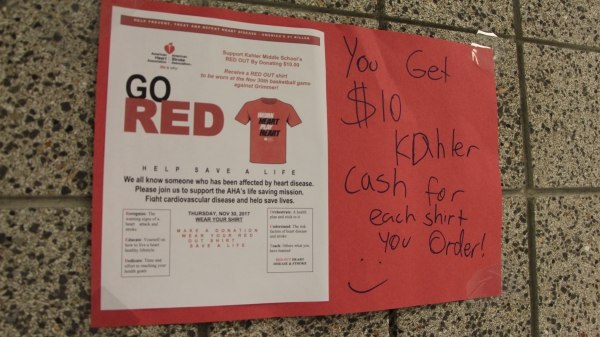 HELP PREVENT, TREAT AND DEFEAT HEART DISEASE - AMERICA'S #1 KILLER
American Heart Association
American Stroke Association
Support Kahler Middle School's
RED OUT By Donating $10.00
Receive a RED OUT shirt
to be worn at the Nov 30th basketball game
against Grimmer!
GO
RED
HEART
HEART
HELP SAVE A LIFE
We all know someone who has been affected by heart disease.
Please join us to support the AHA's life saving mission.
Fight cardiovascular disease and help save lives.
THURSDAY, NOV 30, 2017
WEAR YOUR SHIRT
MAKE A DONATION
WEAR YOUR RED
OUT SHIRT
SAVE A LIFE
Recognize: The
warning signs of a
heart attack and
stroke
Educate: Yourself on
how to live a heart
healthy lifestyle
Dedicate: Time and
effort to reaching your
health goals
health
plan and stick to it
Understand: The risk
factors of heart disease
and stroke
Teach: Others what you
have learned
RED OUT HEART
DISEASE & STROKE
You Get
$10
KAhler
Cash for
each shirt
you Order!